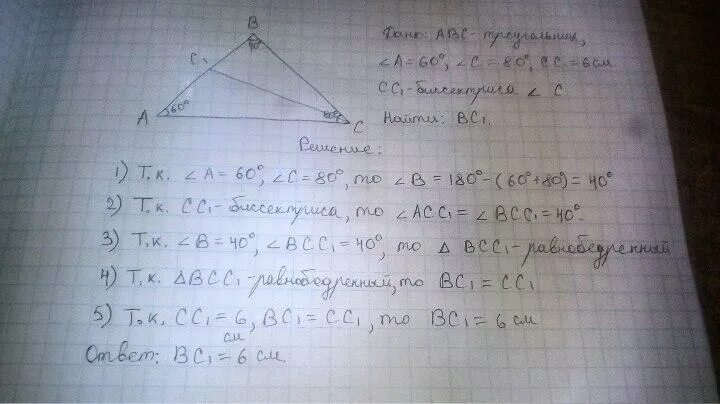 B
40°
C₁
A 60°
80° C
Дано: ABC - треугольник,
∠A = 60°, ∠C = 80°, CC₁ = 6 см
CC₁ - биссектриса ∠ C
Найти: BC₁.
Решение:
1) Т.к. ∠A = 60°, ∠C = 80°, то ∠B = 180° - (60° + 80°) = 40°
2) Т.к. CC₁ - биссектриса, то ∠ACC₁ = ∠BCC₁ = 40°.
3) Т.к. ∠B = 40°, ∠BCC₁ = 40°, то △ BCC₁ - равнобедренный
4) Т.к. △BCC₁ - равнобедренный, то BC₁ = CC₁
5) Т.к. CC₁ = 6 см, BC₁ = CC₁, то BC₁ = 6 см
Ответ: BC₁ = 6 см.